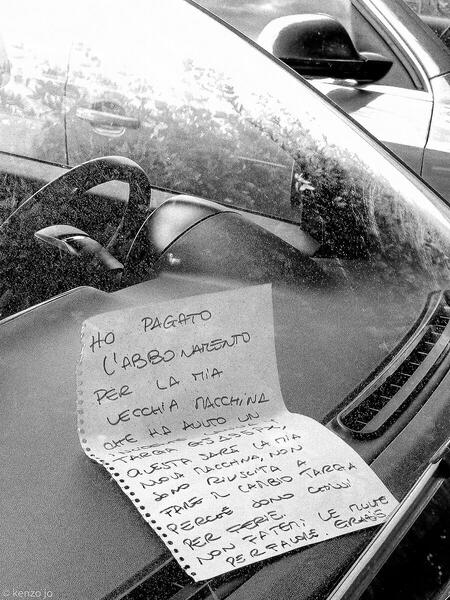 HO PAGATO
L'ABBONAMENTO
PER LA MIA
VECCHIA MACCHINA
CHE HA AVUTO UN
TARGA
QUESTA SARE LA MIA
NOVA MACCHINA, NON
SONO RIUSCITA A
FARE IL CAMBIO TARGA
PERCHÉ SONO CHIUSI
PER FERIE.
NON FATEMI LE MULTE
PER FAVORE. GRAZIE
© kenzo jo